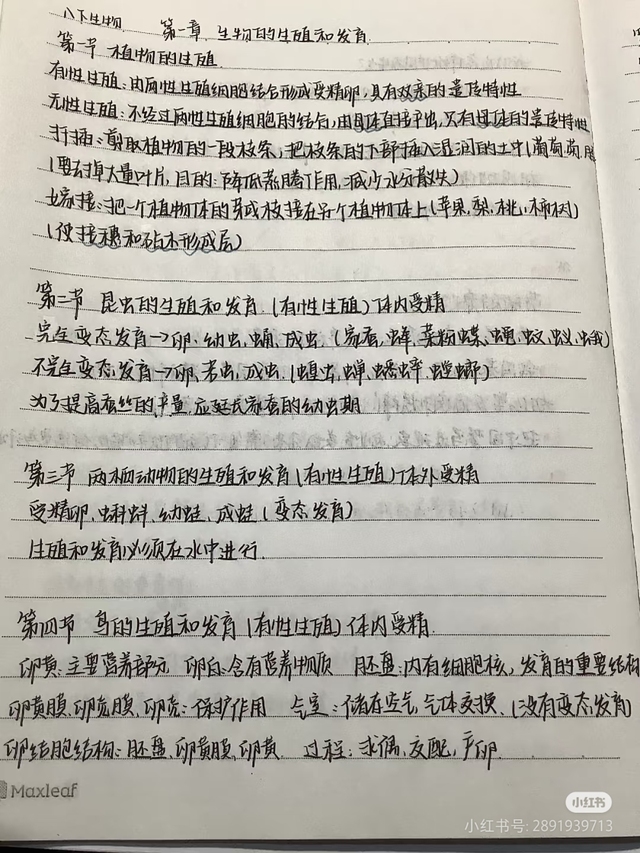 八下生物 第一章 生物的生殖和发育
第一节 植物的生殖
有性生殖：由两性生殖细胞结合形成受精卵，具有双亲的遗传特性
无性生殖：不经过两性生殖细胞的结合，由母体直接产出，只有母体的遗传特性
扦插：剪取植物的一段枝条，把枝条的下部插入湿润的土中（葡萄，
（要去掉大量叶片，目的：降低蒸腾作用，减少水分散失）
嫁接：把一个植物体的芽或枝接在另一个植物体上（苹果，梨，桃，柿树）
（使接穗和砧木形成层）
第二节 昆虫的生殖和发育（有性生殖）体内受精
完全变态发育→卵、幼虫、蛹、成虫.（家蚕、蜂、菜粉蝶、蝇、蚊、蚁、蛾）
不完全变态发育→卵、若虫、成虫（蝗虫、蝉、蟋蟀、螳螂）
为了提高蚕丝的产量，应延长家蚕的幼虫期
第三节 两栖动物的生殖和发育（有性生殖）体外受精
受精卵、蝌蚪、幼蛙、成蛙（变态发育）
生殖和发育必须在水中进行.
第四节 鸟的生殖和发育（有性生殖）体内受精.
卵黄：主要营养部分 卵白：含有营养物质 胚盘：内有细胞核，发育的重要结构
卵黄膜、卵壳膜、卵壳：保护作用 气室：储存空气，气体交换、（没有变态发育）
卵细胞结构：胚盘、卵黄膜、卵黄. 过程：求偶，交配，产卵.
Maxleaf
小红书
小红书号：2891939713